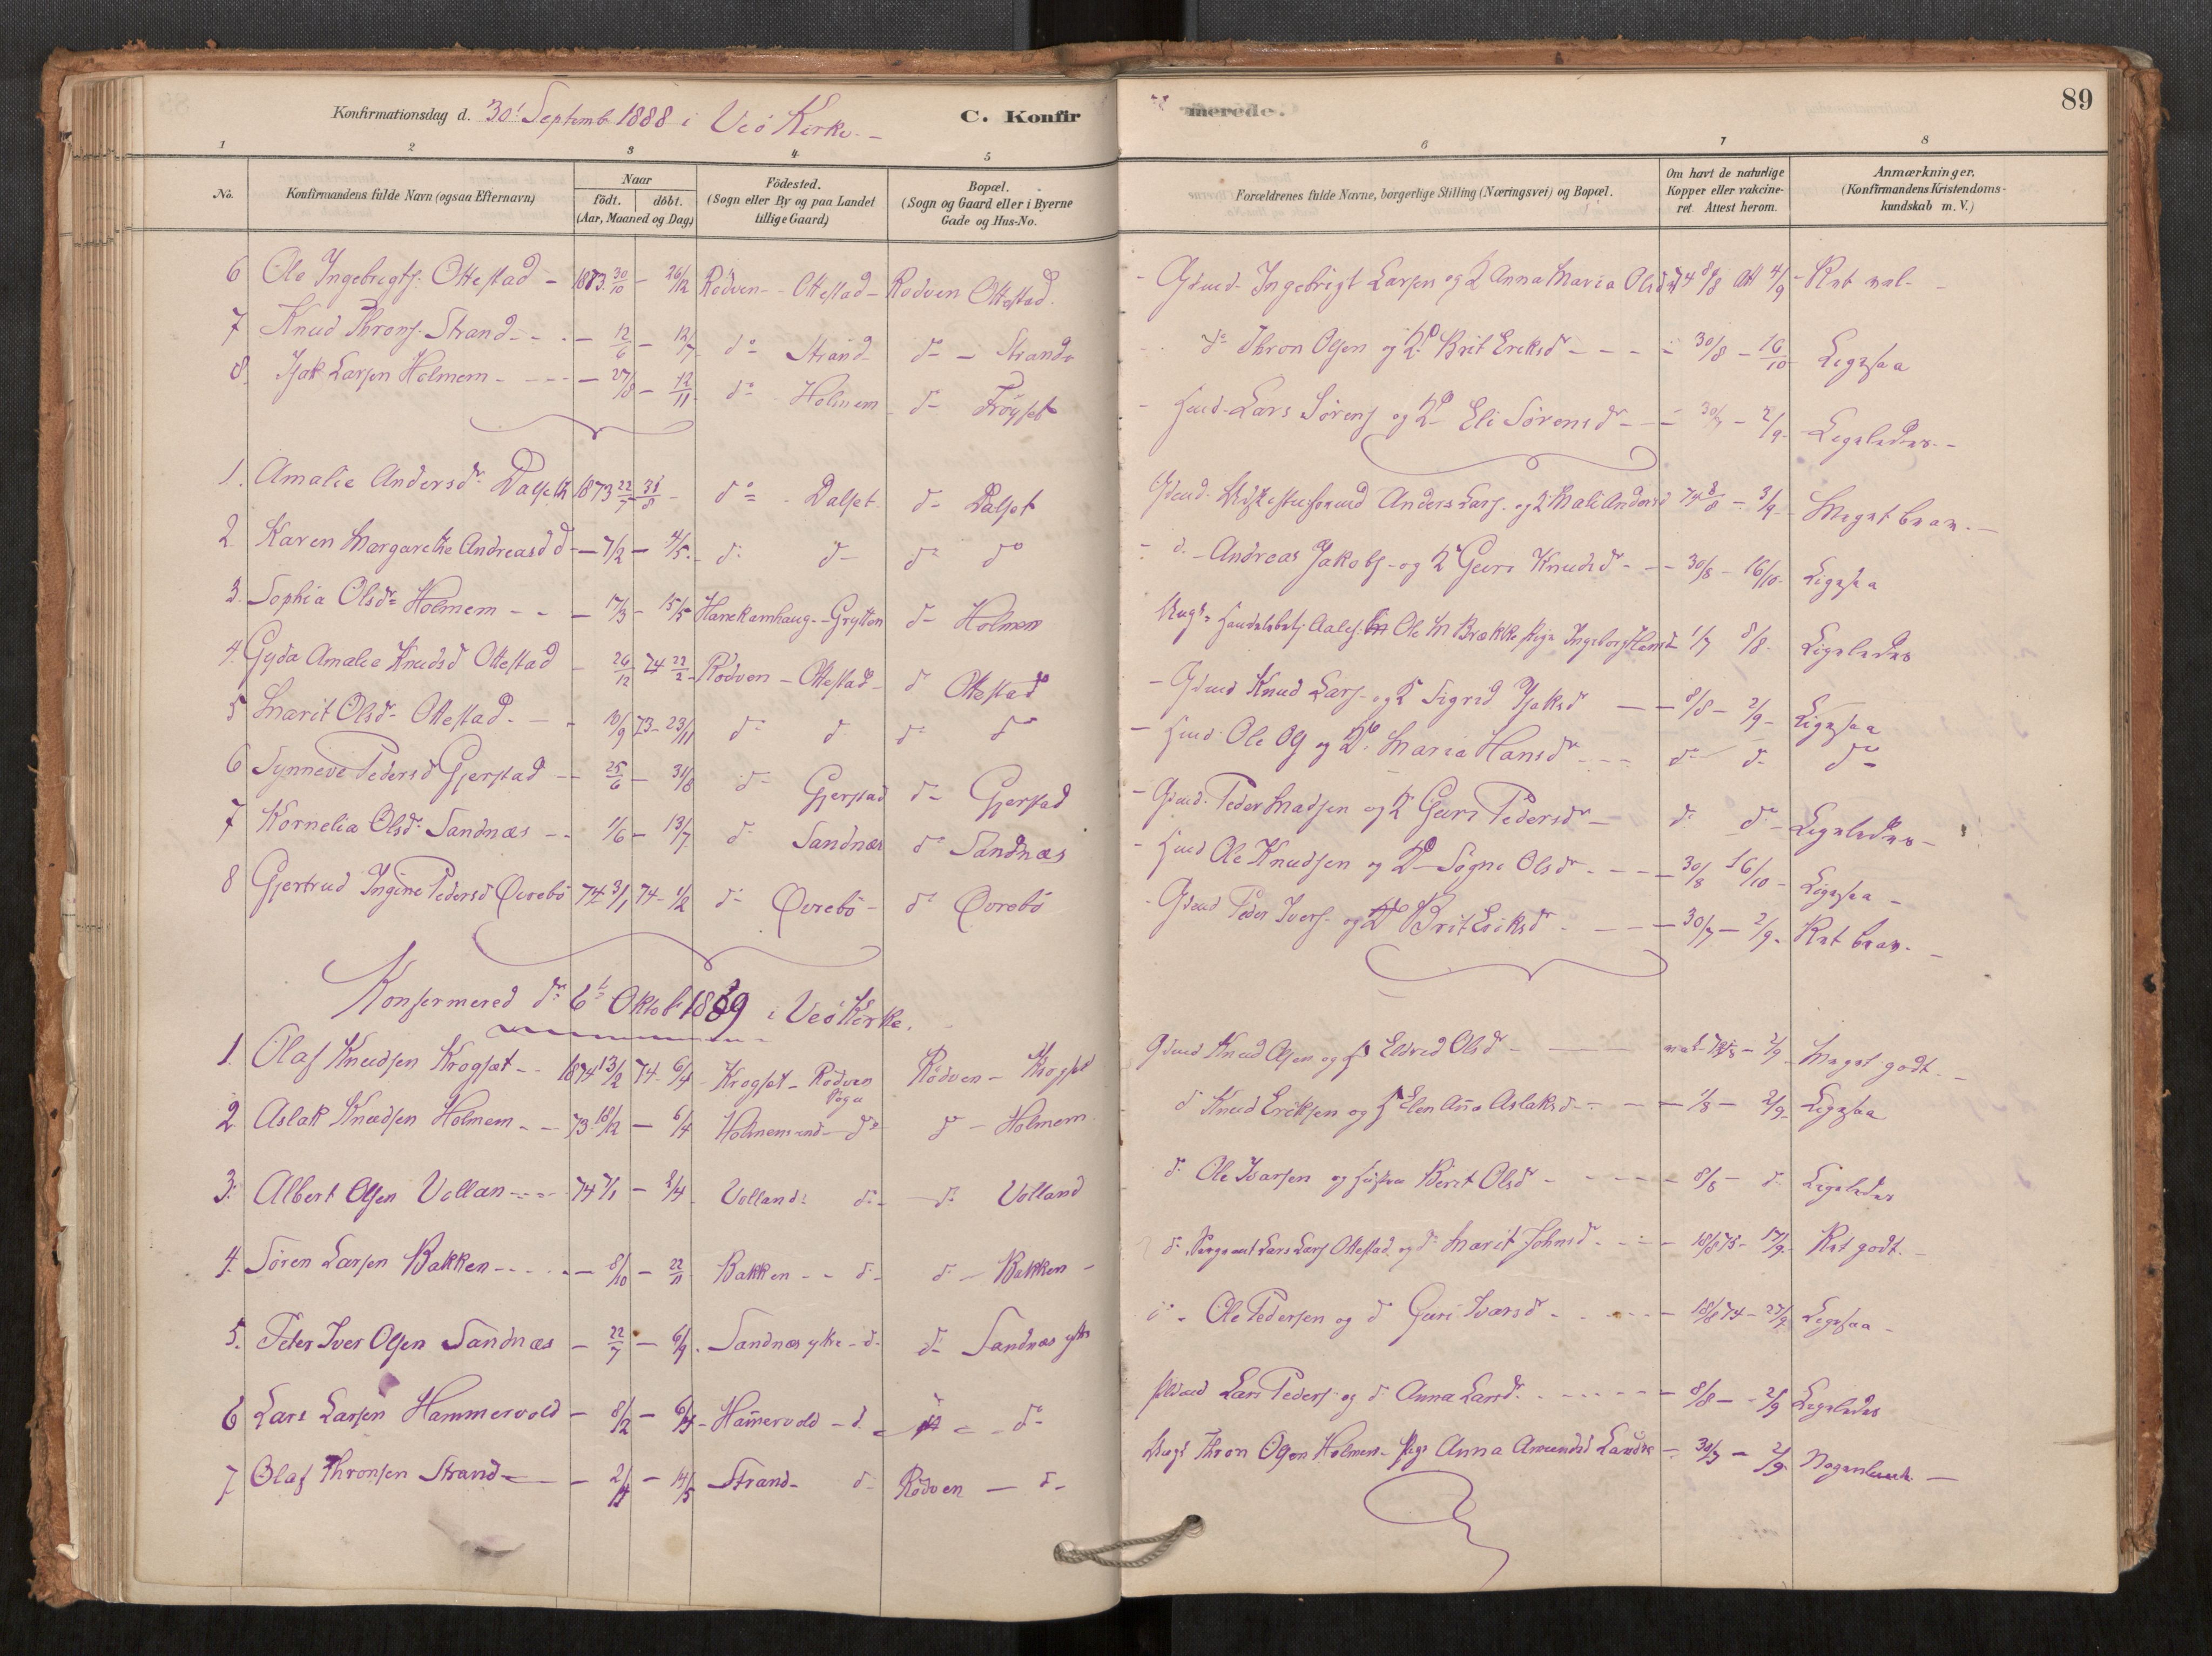 Konfirmationsdag d. 30' Septemb 1888 i Veø Kirke.
C. Konfirmerede.
89
1 2 3 4 5 6 7 8
No. Konfirmandens fulde Navn (ogsaa Efternavn) Naar födt. döbt. (Aar, Maaned og Dag) Födested. (Sogn eller By og paa Landet tillige Gaard) Bopæl. (Sogn og Gaard eller i Byerne Gade og Hus-No. Forældrenes fulde Navne, borgerlige Stilling (Næringsvei) og Bopæl. Om havt de naturlige Kopper eller vakcineret Attest herom. Anmærkninger. (Konfirmandens Kristendomskundskab m. V.)
6 Ole Ingebrigts. Ottestad - 1873. 30/10 - 26/12 Rødven - Ottestad - Rødven Ottestad. - Gdmd. Ingebrigt Larsen og Anna Maria Olsd 74 8/8 Att 4/9 - Ret vel -
7 Knud Throns. Strand - - 12/6 - 12/7 do Strand do - Strand do Thron Olsen og Brit Eriksdr - - - 30/8 - 16/10 Ligesaa
8. Isak Larsen Holmem - - - 27/8 - 12/11 do Holmem do Frøyset - Hmd. Lars Sørens og Eli Sørensdr - - 30/7 - 2/9 - Ligeledes -
1. Amalie Andersdr Dalseth 1873 22/7 - 31/8 - do - Dalset do Dalset Gdmd. Anders Lars. og Mali Andersd 74 8/8 - 3/9 - Meget brav. -
2. Karen Margarethe Andreasd do - 7/2 - 4/5 - do do do do - do - Andreas Jakobs - og Guri Knudsd - - 30/8 - 16/10 - Ligesaa
3. Sophia Olsdr Holmem - - 17/3 - 15/5 Hanekamhaug - Grytten do Holmem Ungk. Ole M Brække Pige Ingeborg 1/7 8/8 - Ligeledes
4. Gyda Amalie Knudsd Ottestad - 26/12 74 22/2 - Rødven - Ottestad - do Ottestad - Gdmd Knud Lars - og Sigrid Isaksd - 8/8 - 2/9 - Ligesaa
5 Marit Olsdr Ottestad. - - 10/9 73 - 23/11 do do do do - Hmd. Ole Ols og Maria Hansdr - - - do do do
6 Synneve Pedersd Gjerstad - 25/6 - 31/8 do Gjerstad do Gjerstad - Gdmd. Peder Madsen og Guri Pedersdr - do do - Ligeledes -
7 Kornelia Olsdr Sandnæs - - 1/6 - 13/7 do Sandnæs do Sandnæs - Hmd Ole Knudsen og Signe Olsdr - - - 30/8 16/10 - Ligesaa -
8 Gjertrud Ingine Pedersd Øvrebø 74 3/1 74 - 1/2 do Øvrebø - do Øvrebø - Gdmd Peder Ivers - og Brit Eriksdr - - - 30/7 - 2/9 - Ret brav. -
Konfermered dn 6t Oktob 1889 i Veø Kirke.
1. Olaf Knudsen Krogset - - 1874 13/2 74 - 6/4 Krogset - Rødven Sogn Rødven - Krogset Gdmd Knud Olsen og H Eldrid Olsdr - - 2/9 - Meget godt. -
2 Aslak Knudsen Holmem - - 73. 18/12 - 6/4 Holmem - do do - Holmem do Knud Eriksen og H Elen Aña Aslaksd - - - 1/8 - 2/9 - Ligesaa
3. Albert Olsen Vollan - - - 74 7/1 - 2/4 - Volland do - do Volland do Ole Ivarsen og Hustru Berit Olsd - - - - 8/8 - do Ligeledes
4. Søren Larsen Bakken - - - - 8/10 - 22/11 Bakken - - do - do - Bakken - do Sergeant Lars Lars Ottestad og do Marit Johnsd - - - 18/8 75 - 17/9 - Ret godt. -
5. Peter Iver Olsen Sandnæs - 22/7 - 6/9 - Sandnæs ytre - do do - Sandnæs ytre do - Ole Pedersen og do Guri Ivarsdr - - - 18/8 74 - 27/9 Ligesaa -
6 Lars Larsen Hammervold - 8/2 - 6/4 - Ham̃ervold - do - do Lars Peders - og do Anna Larsdr - - - - 8/8 - - 2/9 Ligeledes
7. Olaf Thronsen Strand - - 2/4 - 14/5 - Strand - do Rødven - do - Ungk Thron Olsen Holmem - Pige Anna Amundsd - 30/7 - 2/9 - Nogenlunde -